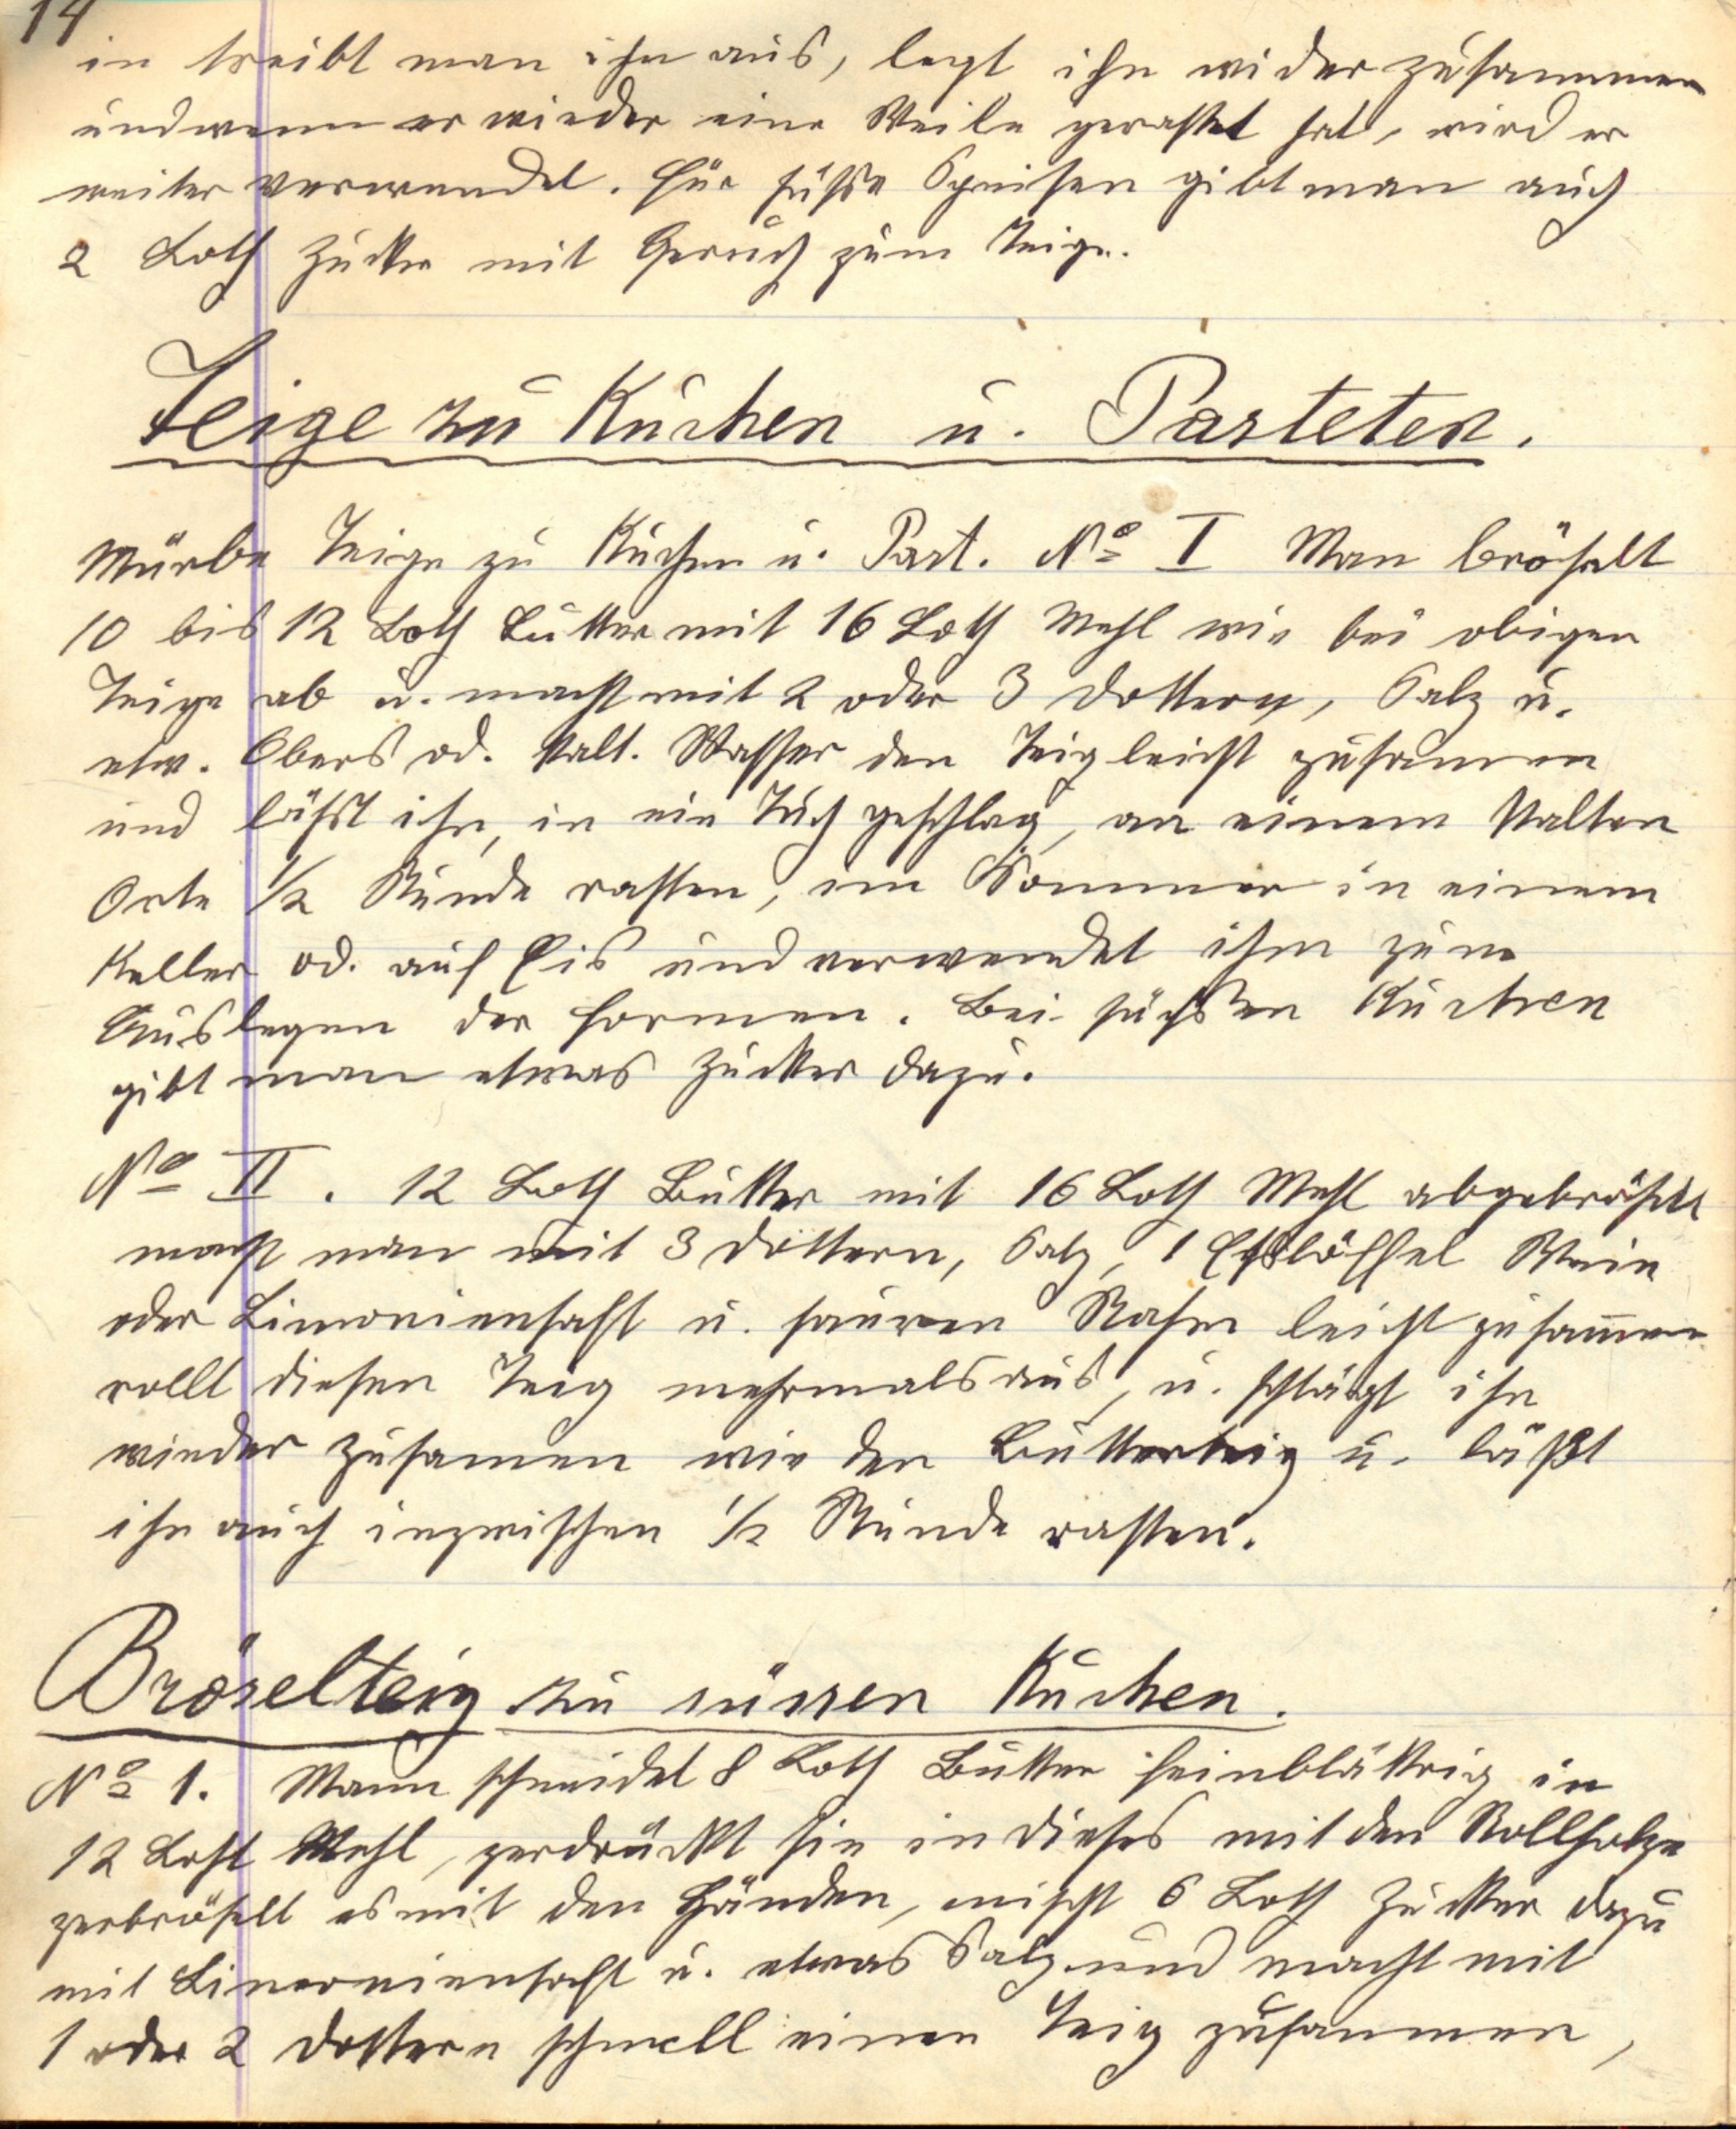 14
in treibt man ihn aus, legt ihn wider zusammen
und wenn er wieder eine Weile gerastet hat, wird er
weiter verwendet. Für süsse Speisen gibt man auch
2 Loth Zucker mit Geruch zum Teige.
Teige zu Kuchen u. Pasteten.
Mürbe Teige zu Kuchen u. Past. No I Man bröselt
10 bis 12 Loth Butter mit 16 Loth Mehl wie bei obigen
Teige ab u. macht mit 2 oder 3 Dottern, Salz u.
etw. Obers od. kalt. Wasser den Teig leicht zusamen
und läßt ihn, in ein Tuch geschlag, an einem kalten
Orte 1/2 Stunde rasten, im Sommer in einem
Keller od. auf Eis und verwendet ihm zum
Auslegen der Formen. Bei süßen Kuchen
gibt man etwas Zucker dazu.
No II. 12 Loth Butter mit 16 Loth Mehl abgebröselt
macht man mit 3 Dottern, Salz, 1 Eßlöffel Wein
oder Limoniensaft u. sauren Rahm leicht zusam̄en
rollt diesen Teig mehrmals aus, u. schlägt ihn
wieder zusamen wie den Butterteig u. läßt
ihn auch inzwischen 1/2 Stunde rasten.
Bröselteig zu süssen Kuchen.
No 1. Mann schneidet 8 Loth Butter feinblättrig in
12 Loht Mehl, zerdrückt sie in dieses mit den Rollholze
zerbröselt es mit den Händen, mischt 6 Loth Zucker dazu
mit Limoniensaft u. etwas Salz und macht mit
1 oder 2 Dottern schnell einen Teig zusammen,